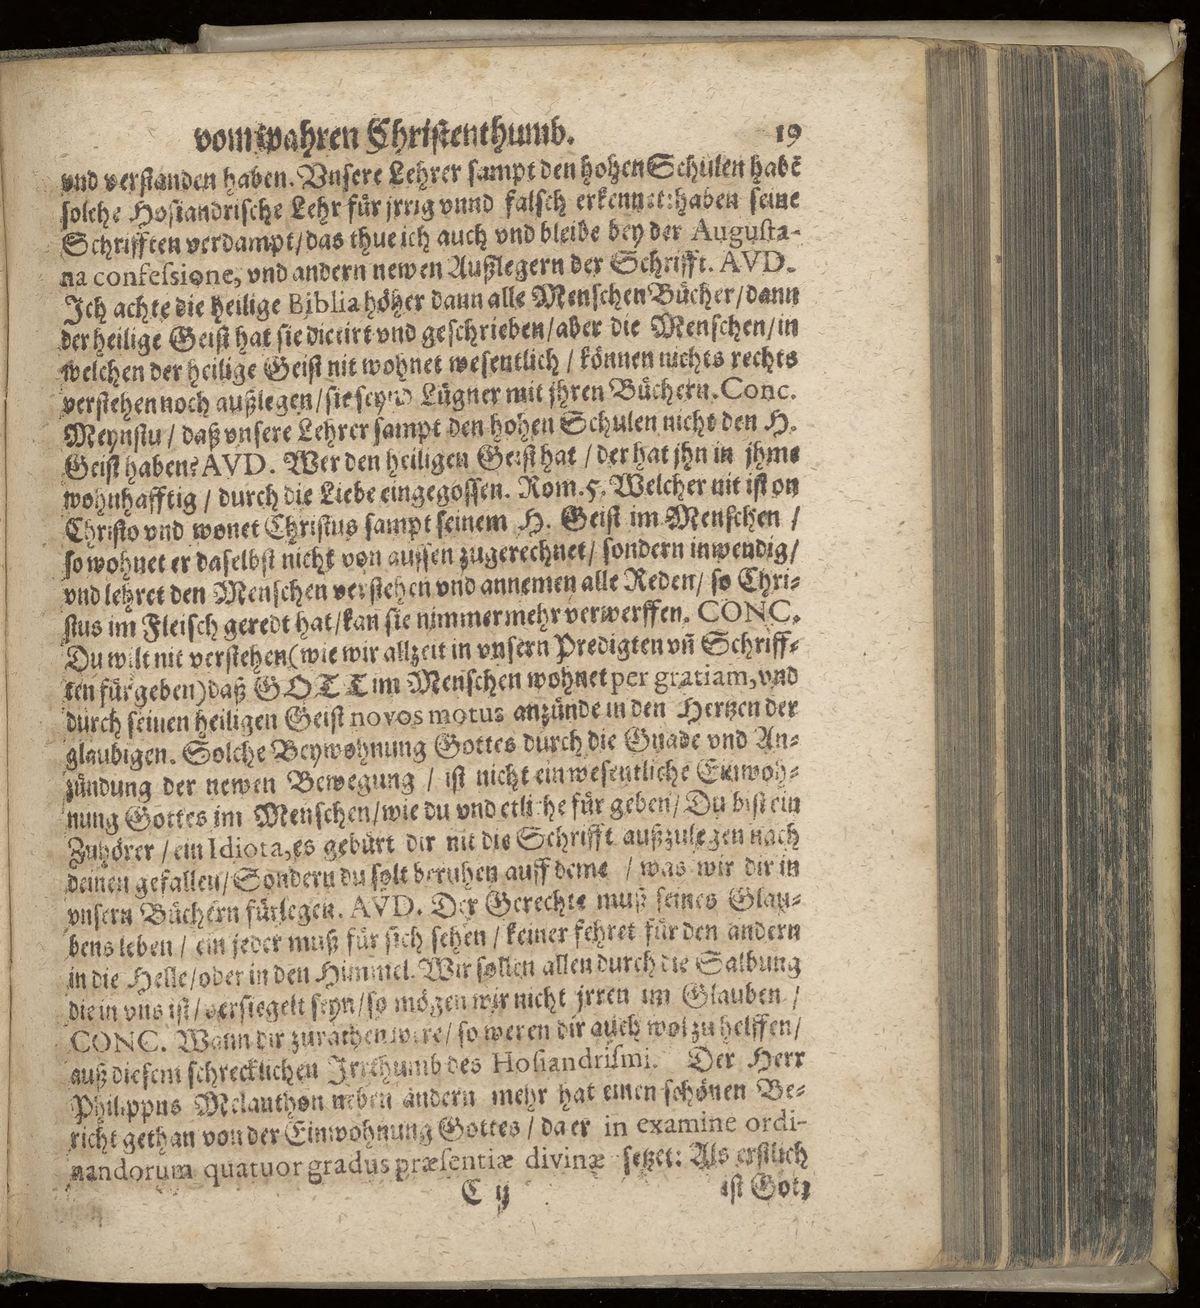 vom wahren Christenthumb. 19
vnd verstanden haben. Vnsere Lehrer sampt den hohen Schulen habē
solche Hosiandrische Lehr für jrrig vnnd falsch erkennet: haben seine
Schrifften verdampt/ das thue ich auch vnd bleibe bey der Augusta-
na confessione, vnd andern newen Außlegern der Schrifft. AVD.
Ich achte die heilige Biblia höher dann alle Menschen Bücher/ dann
der heilige Geist hat sie dictirt vnd geschrieben/ aber die Menschen/ in
welchen der heilige Geist nit wohnet wesentlich / können nichts rechts
verstehen noch außlegen/ sie seynd Lügner mit jhren Büchern. Conc.
Meynstu / daß vnsere Lehrer sampt den hohen Schulen nicht den H.
Geist haben? AVD. Wer den heiligen Geist hat / der hat jhn in jhme
wohnhafftig / durch die Liebe eingegossen. Rom. 5. Welcher nit ist on
Christo vnd wonet Christus sampt seinem H. Geist im Menschen /
so wohnet er daselbst nicht von aussen zugerechnet/ sondern inwendig/
vnd lehret den Menschen verstehen vnd annemen alle Reden/ so Chri-
stus im Fleisch geredt hat/ kan sie nimmermehr verwerffen. CONC.
Du wilt nit verstehen (wie wir allzeit in vnsern Predigten vñ Schriff-
ten fürgeben) daß GOTT im Menschen wohnet per gratiam, vnd
durch seinen heiligen Geist novos motus anzünde in den Hertzen der
glaubigen. Solche Beywohnung Gottes durch die Gnade vnd An-
zündung der newen Bewegung / ist nicht ein wesentliche Einwoh-
nung Gottes im Menschen/ wie du vnd etliche für geben/ Du bist ein
Zuhörer / ein Idiota, es gebürt dir nit die Schrifft außzulegen nach
deinen gefallen/ Sondern du solt beruhen auff deme / was wir dir in
vnsern Büchern fürlegen. AVD. Der Gerechte muß seines Glau-
bens leben / ein jeder muß für sich sehen / keiner fehret für den andern
in die Helle/ oder in den Himmel. Wir sollen allen durch die Salbung
die in vns ist/ versiegelt seyn/ so mögen wir nicht jrren im Glauben /
CONC. Wann dir zurathen were/ so weren dir auch wol zu helffen/
auß diesem schrecklichen Irrthumb des Hosiandrismi. Der Herr
Philippus Melanthon neben andern mehr hat einen schönen Be-
richt gethan von der Einwohnung Gottes / da er in examine ordi-
nandorum quatuor gradus præsentiæ divinæ setzet: Als erstlich
C ij ist Got